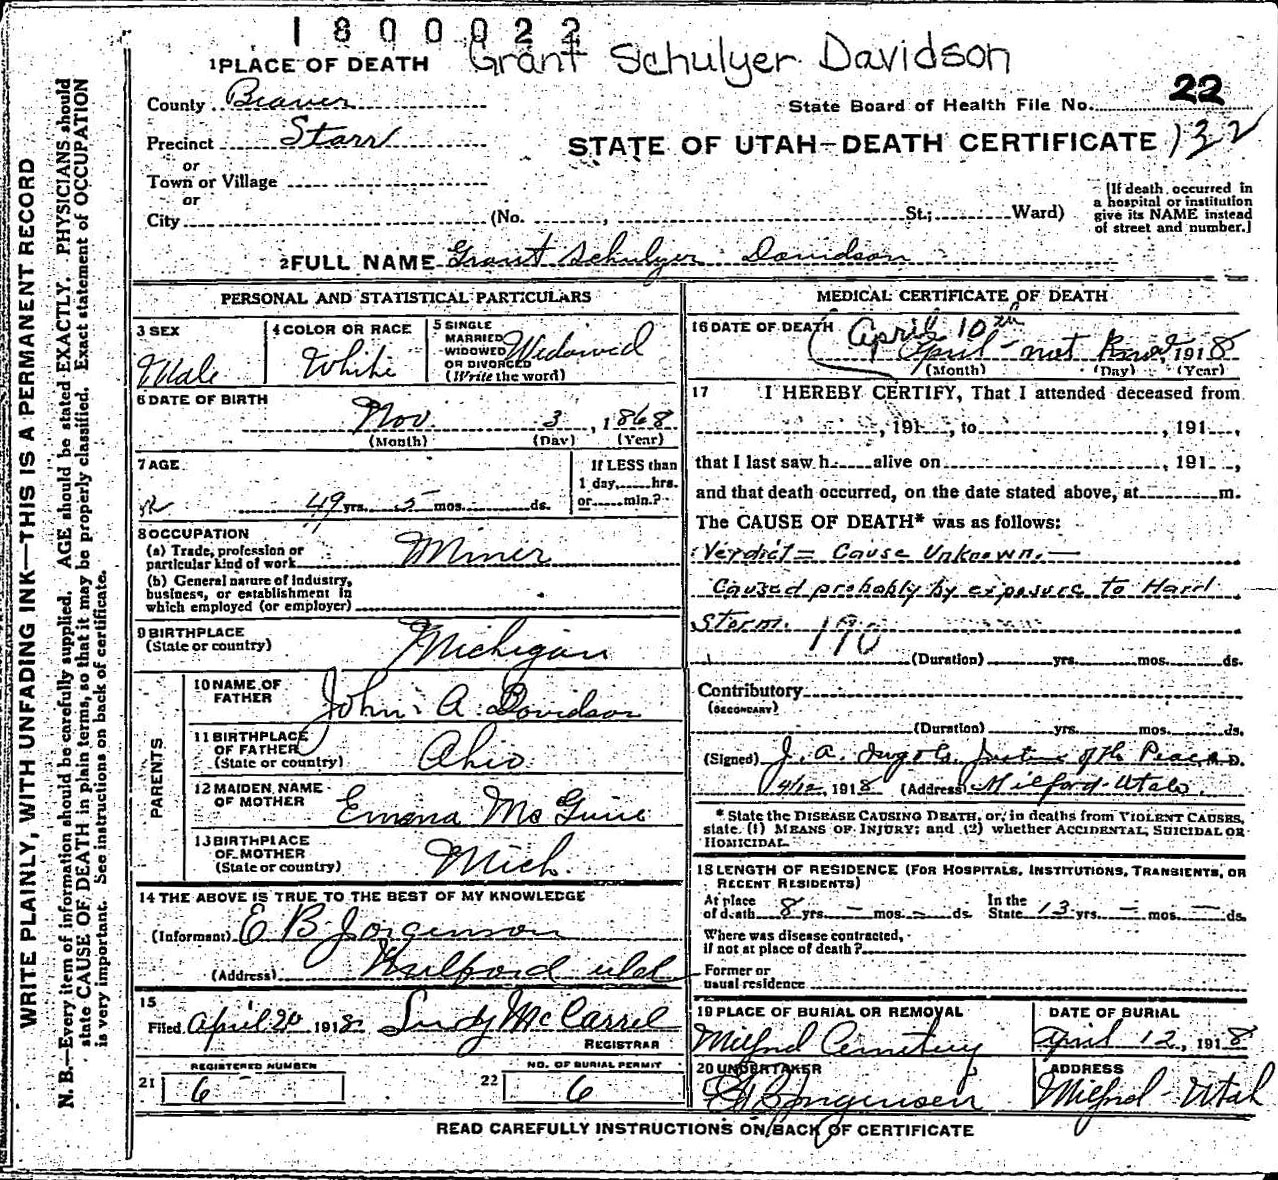 1800022
Grant Schulyer Davidson
1 PLACE OF DEATH
County Beaver
State Board of Health File No. 22
Precinct Starr
STATE OF UTAH—DEATH CERTIFICATE 132
or
Town or Village
or
City (No. , St.; Ward)
(If death occurred in
a hospital or institution
give its NAME instead
of street and number.)
2 FULL NAME Grant Schulyer Davidson
PERSONAL AND STATISTICAL PARTICULARS
3 SEX
Male
4 COLOR OR RACE
White
5 SINGLE
MARRIED
WIDOWED
OR DIVORCED
(Write the word)
Widowed
6 DATE OF BIRTH
Nov. 3, 1868
(Month) (Day) (Year)
7 AGE
49 yrs. 5 mos. ds.
If LESS than
1 day, hrs.
or min.?
8 OCCUPATION
(a) Trade, profession or
particular kind of work Miner
(b) General nature of industry,
business, or establishment in
which employed (or employer)
9 BIRTHPLACE
(State or country) Michigan
PARENTS
10 NAME OF
FATHER John A. Davidson
11 BIRTHPLACE
OF FATHER
(State or country) Ohio
12 MAIDEN NAME
OF MOTHER Emma McGuire
13 BIRTHPLACE
OF MOTHER
(State or country) Mich.
14 THE ABOVE IS TRUE TO THE BEST OF MY KNOWLEDGE
(Informant) E B Jorgenson
(Address) Milford Utah
15
Filed April 20 1918 McCarrel
REGISTRAR
REGISTERED NUMBER
21 6
NO. OF BURIAL PERMIT
22 6
MEDICAL CERTIFICATE OF DEATH
16 DATE OF DEATH
April 10th
April - not 1918
(Month) (Day) (Year)
17 I HEREBY CERTIFY, That I attended deceased from
, 191 , to , 191 ,
that I last saw h alive on , 191 ,
and that death occurred, on the date stated above, at m.
The CAUSE OF DEATH* was as follows:
Verdict = Cause Unknown. —
Caused probably by exposure to Hard
Storm. 190
(Duration) yrs. mos. ds.
Contributory
(SECONDARY)
(Duration) yrs. mos. ds.
(Signed) J. A. Justice of the Peace M. D.
4/12, 1918 (Address) Milford-Utah
* State the DISEASE CAUSING DEATH, or, in deaths from VIOLENT CAUSES,
state (1) MEANS OF INJURY; and (2) whether ACCIDENTAL, SUICIDAL OR
HOMICIDAL.
18 LENGTH OF RESIDENCE (FOR HOSPITALS, INSTITUTIONS, TRANSIENTS, OR
RECENT RESIDENTS)
At place
of death 8 yrs. - mos. - ds.
In the
State 13 yrs. - mos. - ds.
Where was disease contracted,
if not at place of death?
Former or
usual residence
19 PLACE OF BURIAL OR REMOVAL
Milford Cemetery
DATE OF BURIAL
April 12, 1918
20 UNDERTAKER
E B Jorgensen
ADDRESS
Milford - Utah
READ CAREFULLY INSTRUCTIONS ON BACK OF CERTIFICATE
WRITE PLAINLY, WITH UNFADING INK—THIS IS A PERMANENT RECORD
N. B.—Every item of information should be carefully supplied. AGE should be stated EXACTLY. PHYSICIANS should
state CAUSE OF DEATH in plain terms, so that it may be properly classified. Exact statement of OCCUPATION
is very important. See instructions on back of certificate.